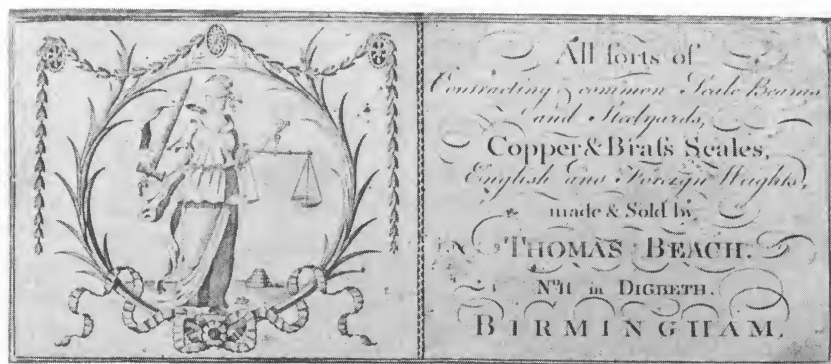 All ſorts of
Contracting & common Scale Beams
and Steelyards,
Copper & Braſs Scales,
English and Foreign Weights,
made & Sold by
THOMAS BEACH.
Nº 11 in DIGBETH.
BIRMINGHAM.